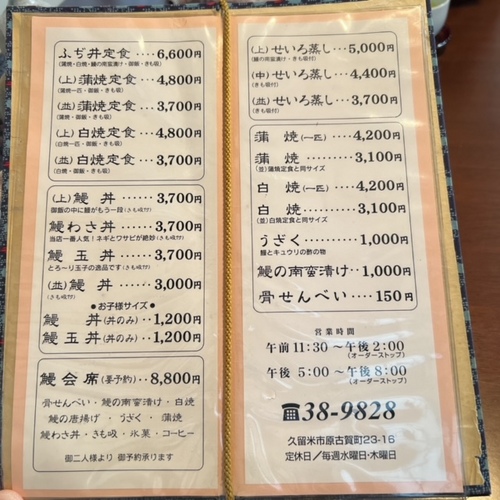 ふぢ丼定食 ････6,600円
(蒲焼・白焼・鰻の南蛮漬け・御飯・きも吸)
(上)蒲焼定食 ･･･4,800円
(蒲焼一匹・御飯・きも吸)
(並)蒲焼定食 ･･･3,700円
(蒲焼・御飯・きも吸)
(上)白焼定食 ･･･4,800円
(白焼一匹・御飯・きも吸)
(並)白焼定食 ･･･3,700円
(白焼・御飯・きも吸)
(上)鰻 丼 ･････3,700円
御飯の中に鰻がもう一段(きも吸付)
鰻わさ丼 ･････3,700円
当店一番人気!ネギとワサビが絶妙(きも吸付)
鰻 玉 丼 ･････3,700円
とろ〜り玉子の逸品です(きも吸付)
(並)鰻 丼 ･････3,000円
(きも吸付)
●お子様サイズ●
鰻 丼(丼のみ)･･1,200円
鰻 玉 丼(丼のみ)･･1,200円
鰻会席(要予約)･･8,800円
骨せんべい・鰻の南蛮漬け・白焼
鰻の唐揚げ・うざく・蒲焼
鰻わさ丼・きも吸・氷菓・コーヒー
御二人様より 御予約承ります
(上)せいろ蒸し･･･5,000円
(鰻の南蛮漬け・きも吸付)
(中)せいろ蒸し･･･4,400円
(きも吸付)
(並)せいろ蒸し･･･3,700円
(きも吸付)
蒲 焼(一匹)･･4,200円
蒲 焼 ･･････3,100円
(並)蒲焼定食と同サイズ
白 焼(一匹)･･4,200円
白 焼 ･･････3,100円
(並)白焼定食と同サイズ
うざく ･･････1,000円
鰻とキュウリの酢の物
鰻の南蛮漬け･･1,000円
骨せんべい ････150円
営業時間
午前 11:30 〜午後 2:00
(オーダーストップ)
午後 5:00 〜午後 8:00
(オーダーストップ)
☎38-9828
久留米市原古賀町23-16
定休日／毎週水曜日・木曜日